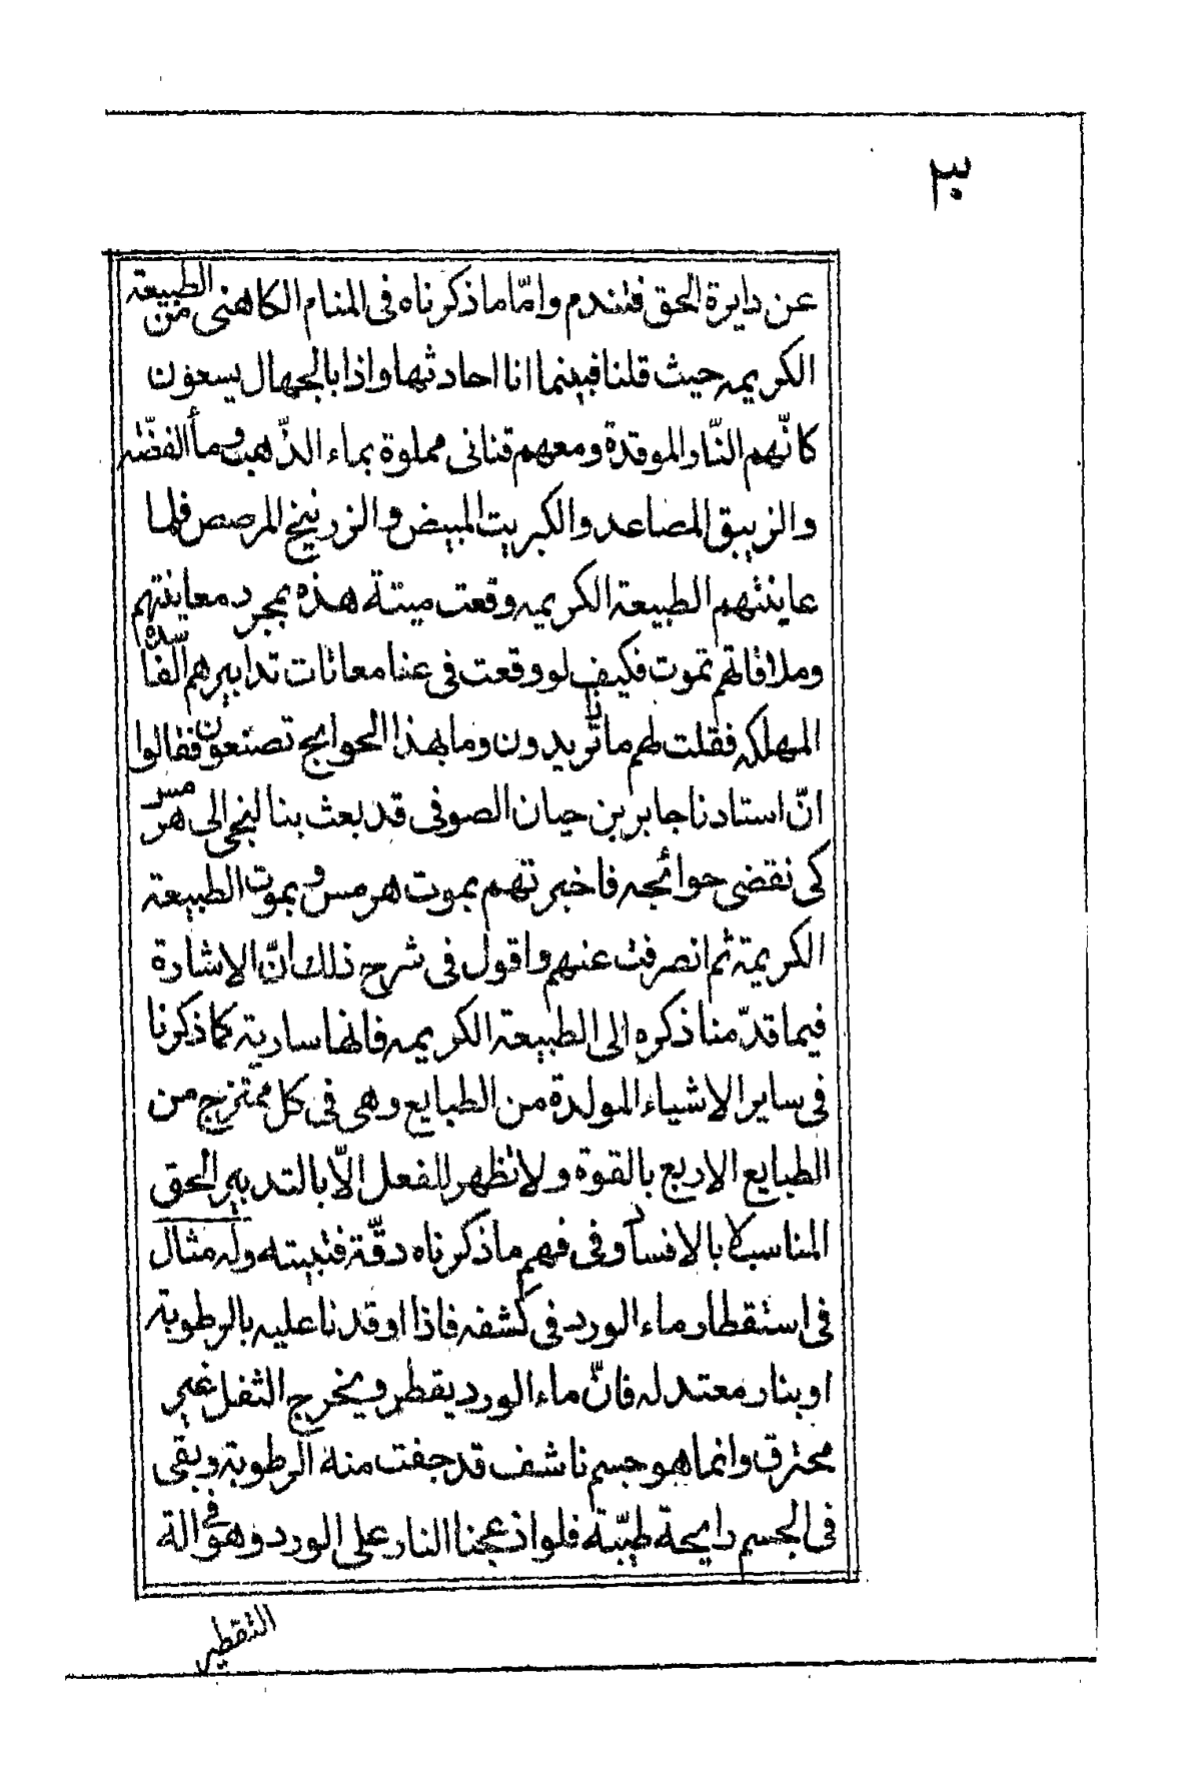 ٣٠
عن دايرة الحق فتندم وامّا ما ذكرناه فى المنام الكاهنى من الطبيعة
الكريمه حيث قلنا فبينما انا احادثها واذا بالجهال يسعون
كانّهم النّار الموقدة ومعهم قنانى مملوة بماء الذّهب وماء الفضّه
والزيبق المصاعد والكبريت المبيض والزرنيخ المرصص فلما
عاينتهم الطبيعة الكريمه وقعت ميتة هذه بمجرد معاينتهم
وملاقاتهم تموت فكيف لو وقعت فى عنا معانات تدابيرهم الفاسده
المهلكه فقلت لهم ما تريدون وما بهذا الحوايج تصنعون فقالوا
انّ استادنا جابر بن حيان الصوفى قد بعث بنا لنجى الى هرمس
كى نقضى حوائجه فاخبرتهم بموت هرمس وبموت الطبيعة
الكريمة ثم انصرفت عنهم واقول فى شرح ذلك انّ الاشارة
فيما قدّمنا ذكره الى الطبيعة الكريمه فانها سارية كما ذكرنا
فى ساير الاشياء المولدة من الطبايع وهى فى كل ممتزج من
الطبايع الاربع بالقوة ولا تظهر للفعل الّا بالتدبير الحق
المناسب لا بالافساد وفى فهم ما ذكرناه دقّة فتثبيته وله مثال
فى استقطار ماء الورد فى كشفه فاذا اوقدنا عليه بالرطوبة
او بنار معتدله فانّ ماء الورد يقطر ويخرج الثفل غير
محترق وانما هو جسم ناشف قد جفت منه الرطوبة وبقى
فى الجسم رايحة طيّبة فلو اذعجنا النار على الورد وهو فى الة
التقطير